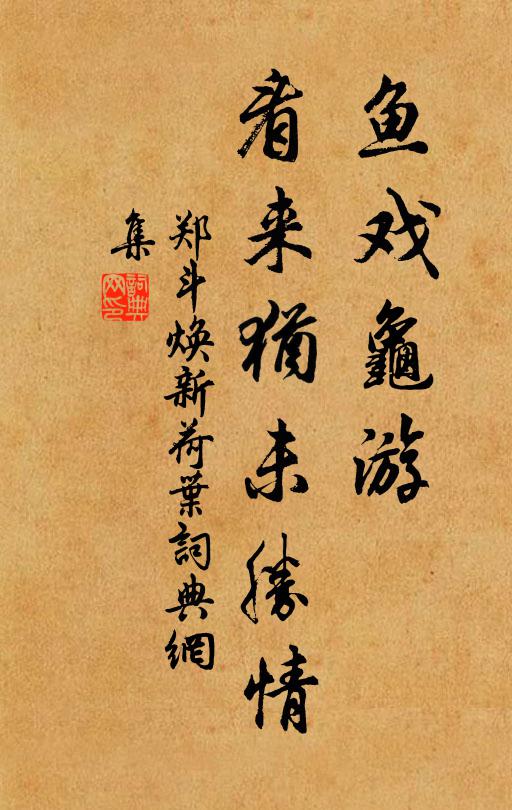 鱼戏龜游
看来猶未勝情
郑斗焕新荷葉詞典網
集
詞典
网印